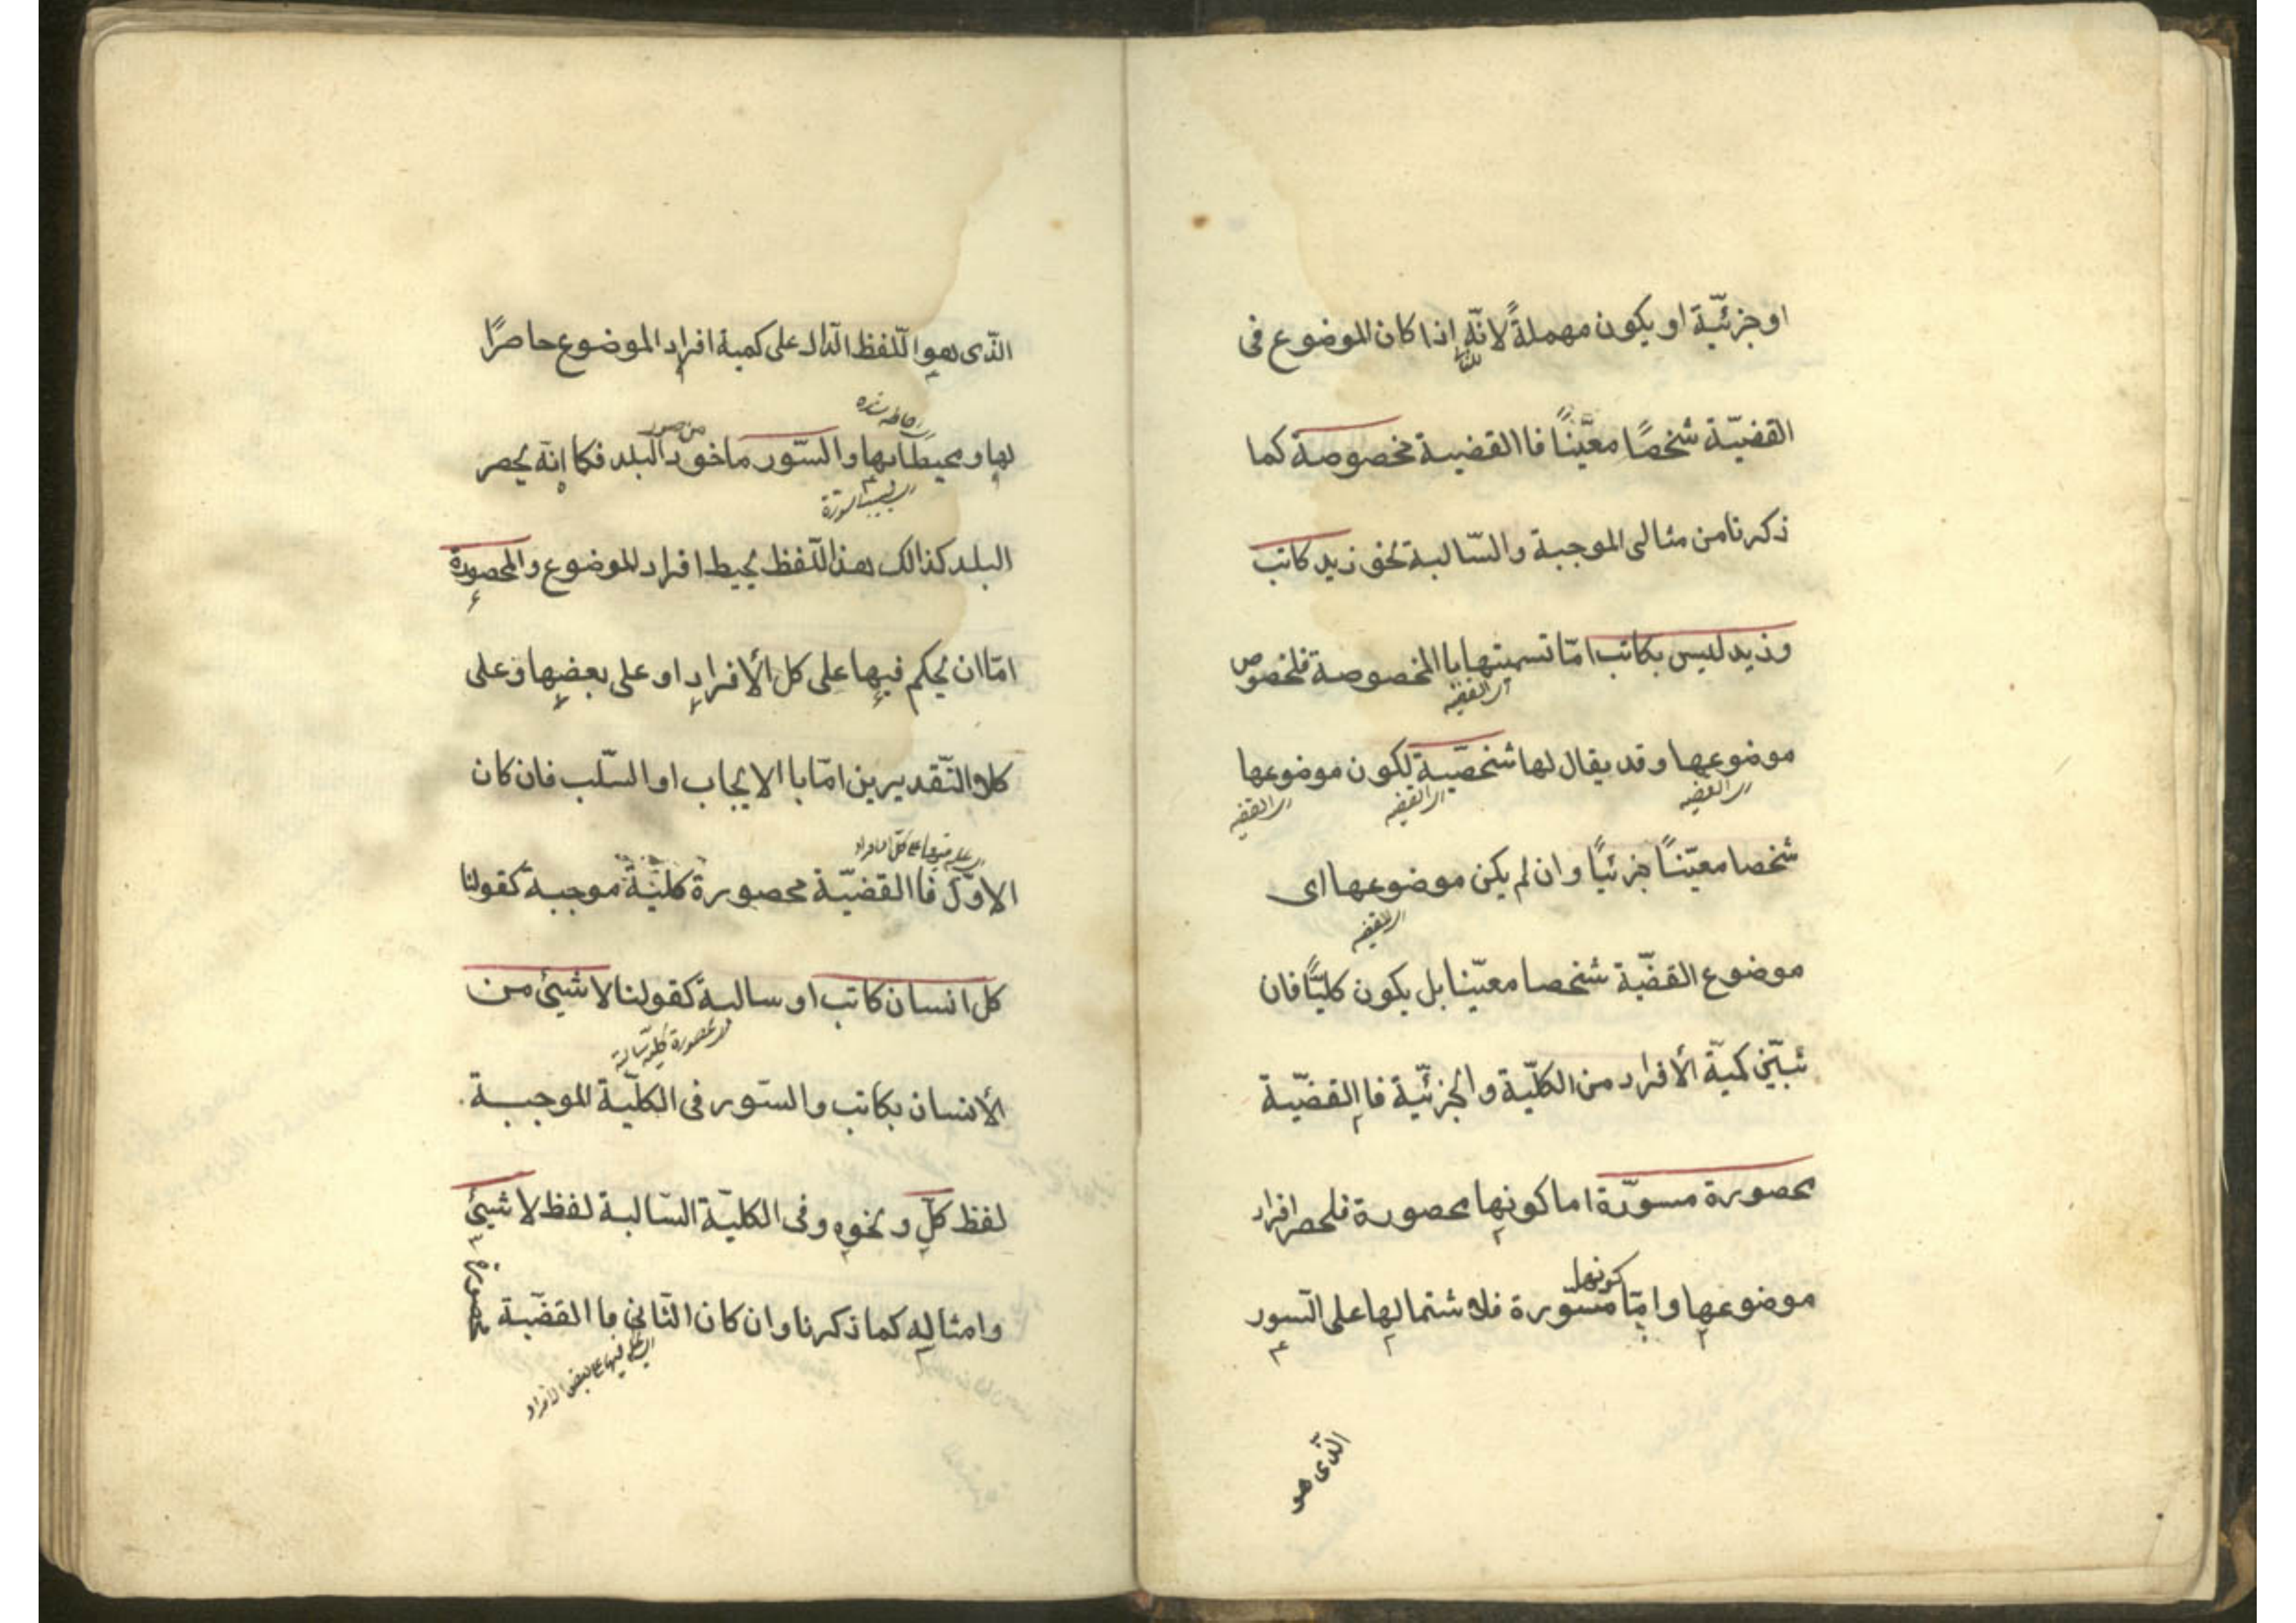 او جزئيّة او يكون مهملةً لانّه اذا كان الموضوع فى
القضيّة شخصًا معيَّنًا فاالقضيـة مخصوصة كما
ذكرنا من مثالى الموجبة والسّالبـة نحو زيد كاتب
وزيد ليس بكاتب امّا تسميتها باالمخصوصة فلخصوص
اى القضيه
موضوعها وقد يقال لها شخصيّـة لكون موضوعها
اى القضيه
اى القضيه
اى القضيه
شخصا معيّنـاً جزئيًا وان لم يكن موضوعهـا اى
اى القضيه
موضوع القضيّة شخصا معيّنـا بل يكون كليًّا فان
تبيّن كميّة الأفراد من الكليّة والجزئيّة فاالقضيّـة
محصورة مسوّرة اما كونها محصورة فلحصر افراد
كونها
موضوعها وامّا مسوّرة فلاشتمالها على السّور
الّذى هو
الّذى هو الّلفظ الدّال على كمية افراد الموضوع حاصرًا
لها ومحيطًا بها والسّور ماخوذ البلد فكما انّه يحصر
من سور
البلد كذالك هذا الّلفظ يحيط افراد الموضوع والمحصورة
امّا ان يحكم فيها على كل الأفراد او على بعضها وعلى
كلاالتّقديرين امّا باالايجاب او السّلب فان كان
الاوّل فاالقضيّـة محصورة كليّة موجبـة كقولنا
كل انسان كاتب او سالبـة كقولنا لا شيئ من
محصورة كليه سالبة
الأنسان بكاتب والسّور فى الكليّة الموجبـــة
لفظ كلّ ونحوه وفى الكليّة السّالبـة لفظ لا شيئ
وامثاله كما ذكرنا وان كان الثّانى فاالقضيّـة
محصورة
اى يحكم فيها على بعض الافراد